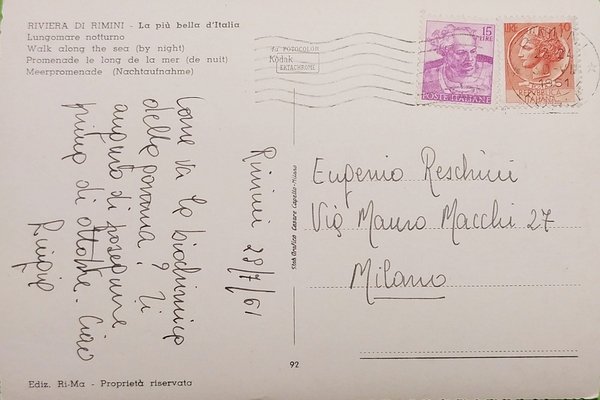 RIVIERA DI RIMINI - La più bella d'Italia
Lungomare notturno
Walk along the sea (by night)
Promenade le long de la mer (de nuit)
Meerpromenade (Nachtaufnahme)
FOTOCOLOR
Kodak
EKTACHROME
15
LIRE
POSTE ITALIANE
LIRE 10
1961
REPUBBLICA
ITALIANA
Come va la biochimica
della
? Ti
auguro di
prima di ottobre. Ciao
Rimini 29/7/61
Stab. Grafico Cesare Capello - Milano
Eugenio Reschini
Via Mauro Macchi 27
Milano
92
Ediz. Ri-Ma - Proprietà riservata